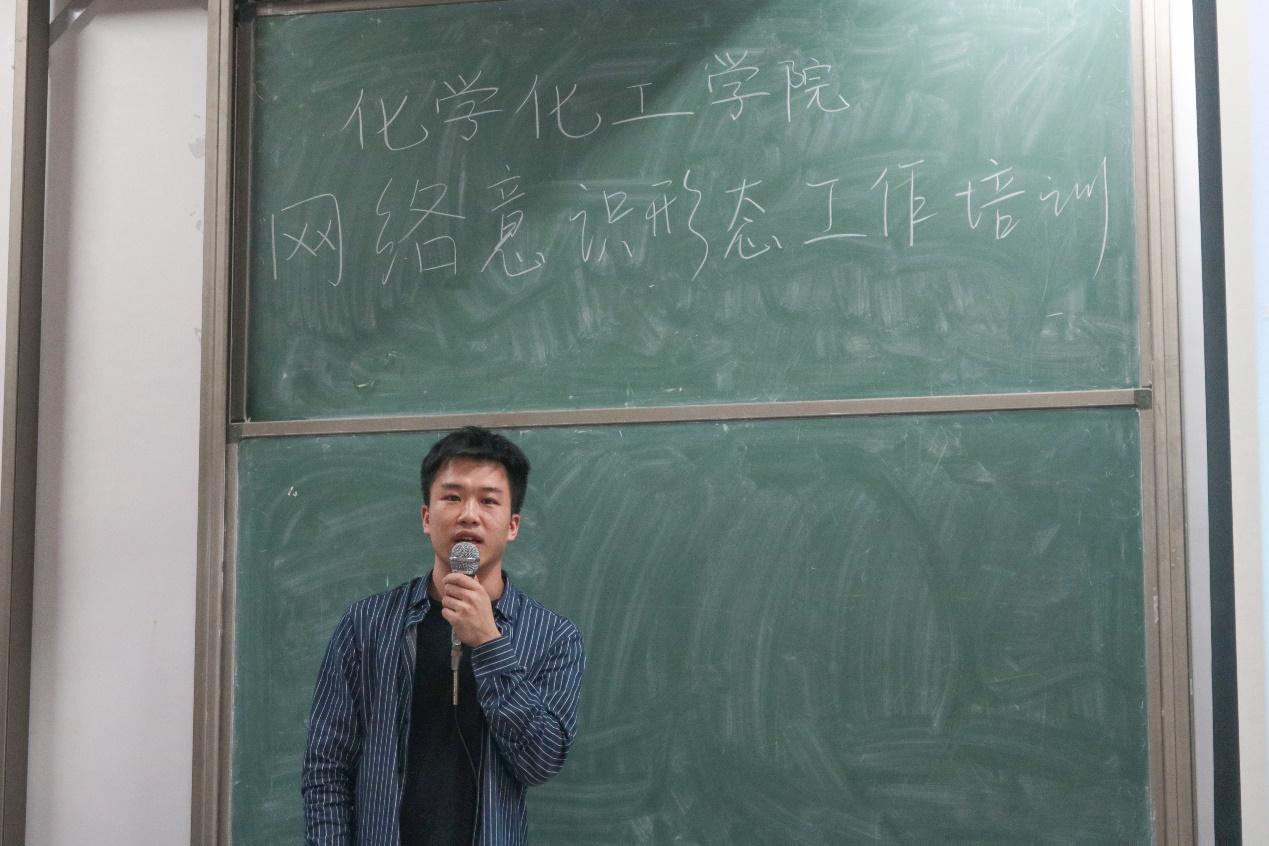 化学化工学院
网络意识形态工作培训